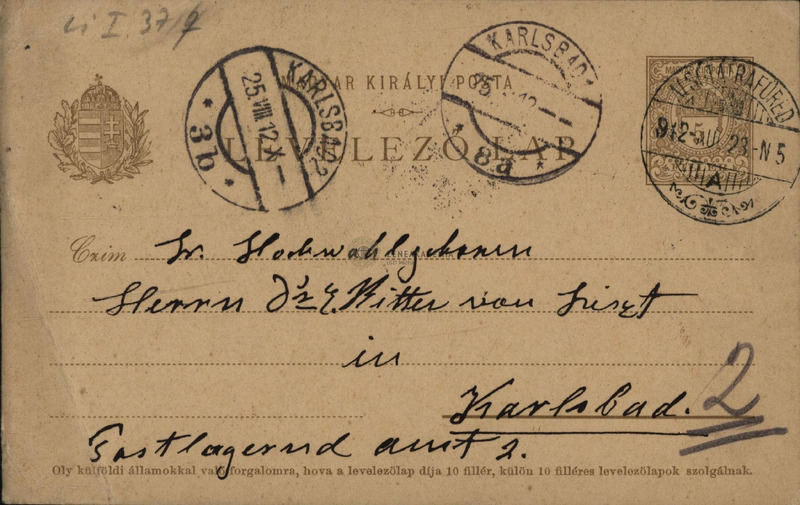 Li I. 37
MAGYAR KIRÁLYI POSTA
LEVELEZŐ-LAP
KARLSBAD 2
25.VIII.12.X-
* 3b *
KARLSBAD 1
12
* 8a *
ALSÓTÁTRAFÜRED
912 AUG 23-N5
A
Czim Sr. Hochwohlgeboren
Herrn Dr. E. Ritter von Liszt
in
Karlsbad. 2
Postlagernd amt 2.
Oly külföldi államokkal való forgalomra, hova a levelezőlap díja 10 fillér, külön 10 filléres levelezőlapok szolgálnak.